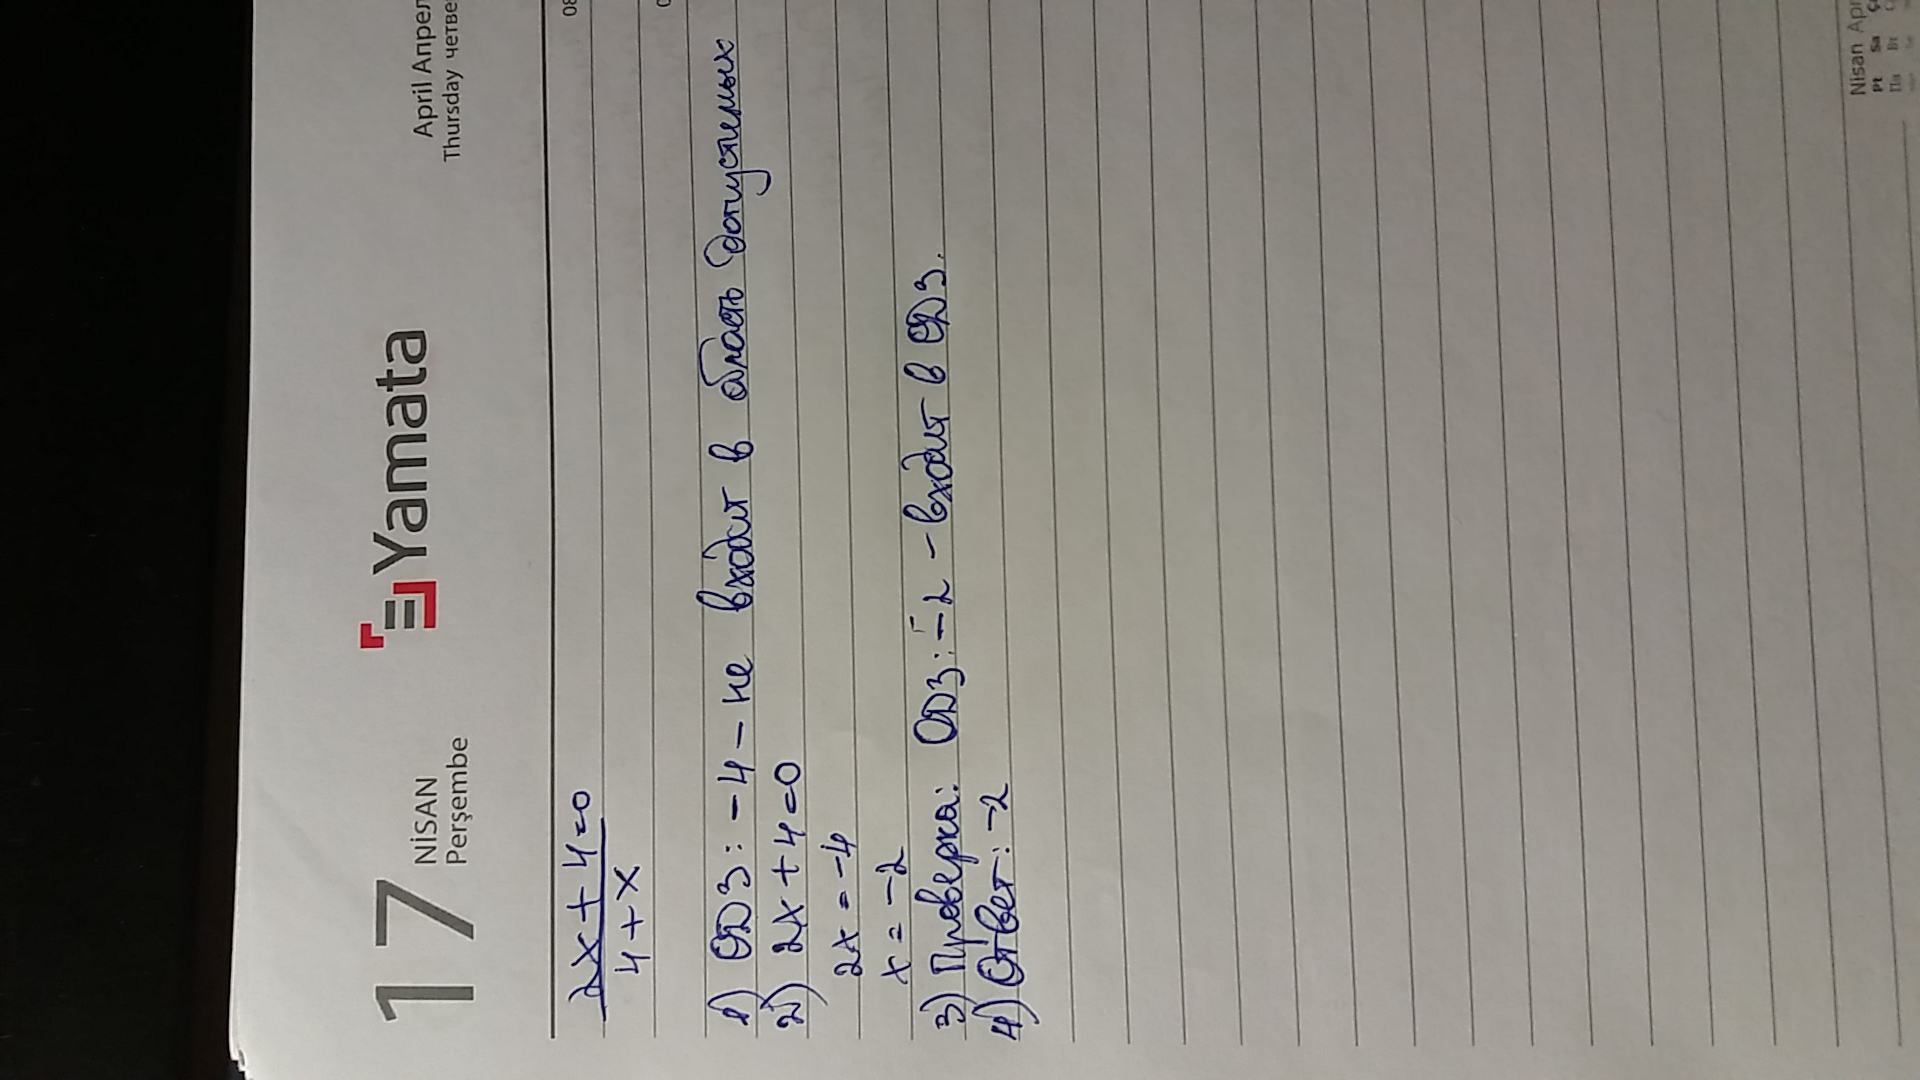 17
NİSAN
Perşembe
Yamata
April Апрел
Thursday четве
08
2x+4=0
4+x
1) ОДЗ: -4 - не входит в область допустимых
2) 2x+4=0
2x=-4
x=-2
3) Проверка: ОДЗ: -2 - входит в ОДЗ.
4) Ответ: -2
Nisan Apr
Pt Sa Ça